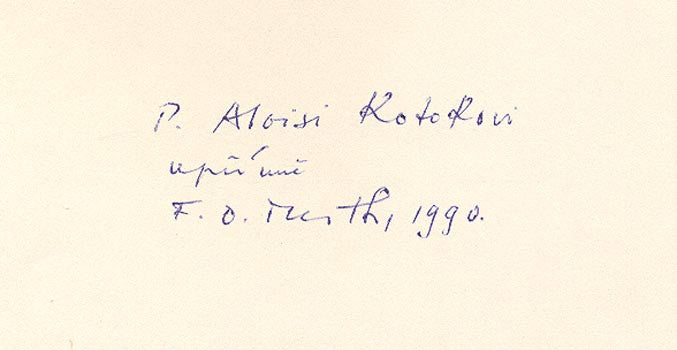 P. Aloisi Kotokovi
upřímně
F. D. Merth, 1990.